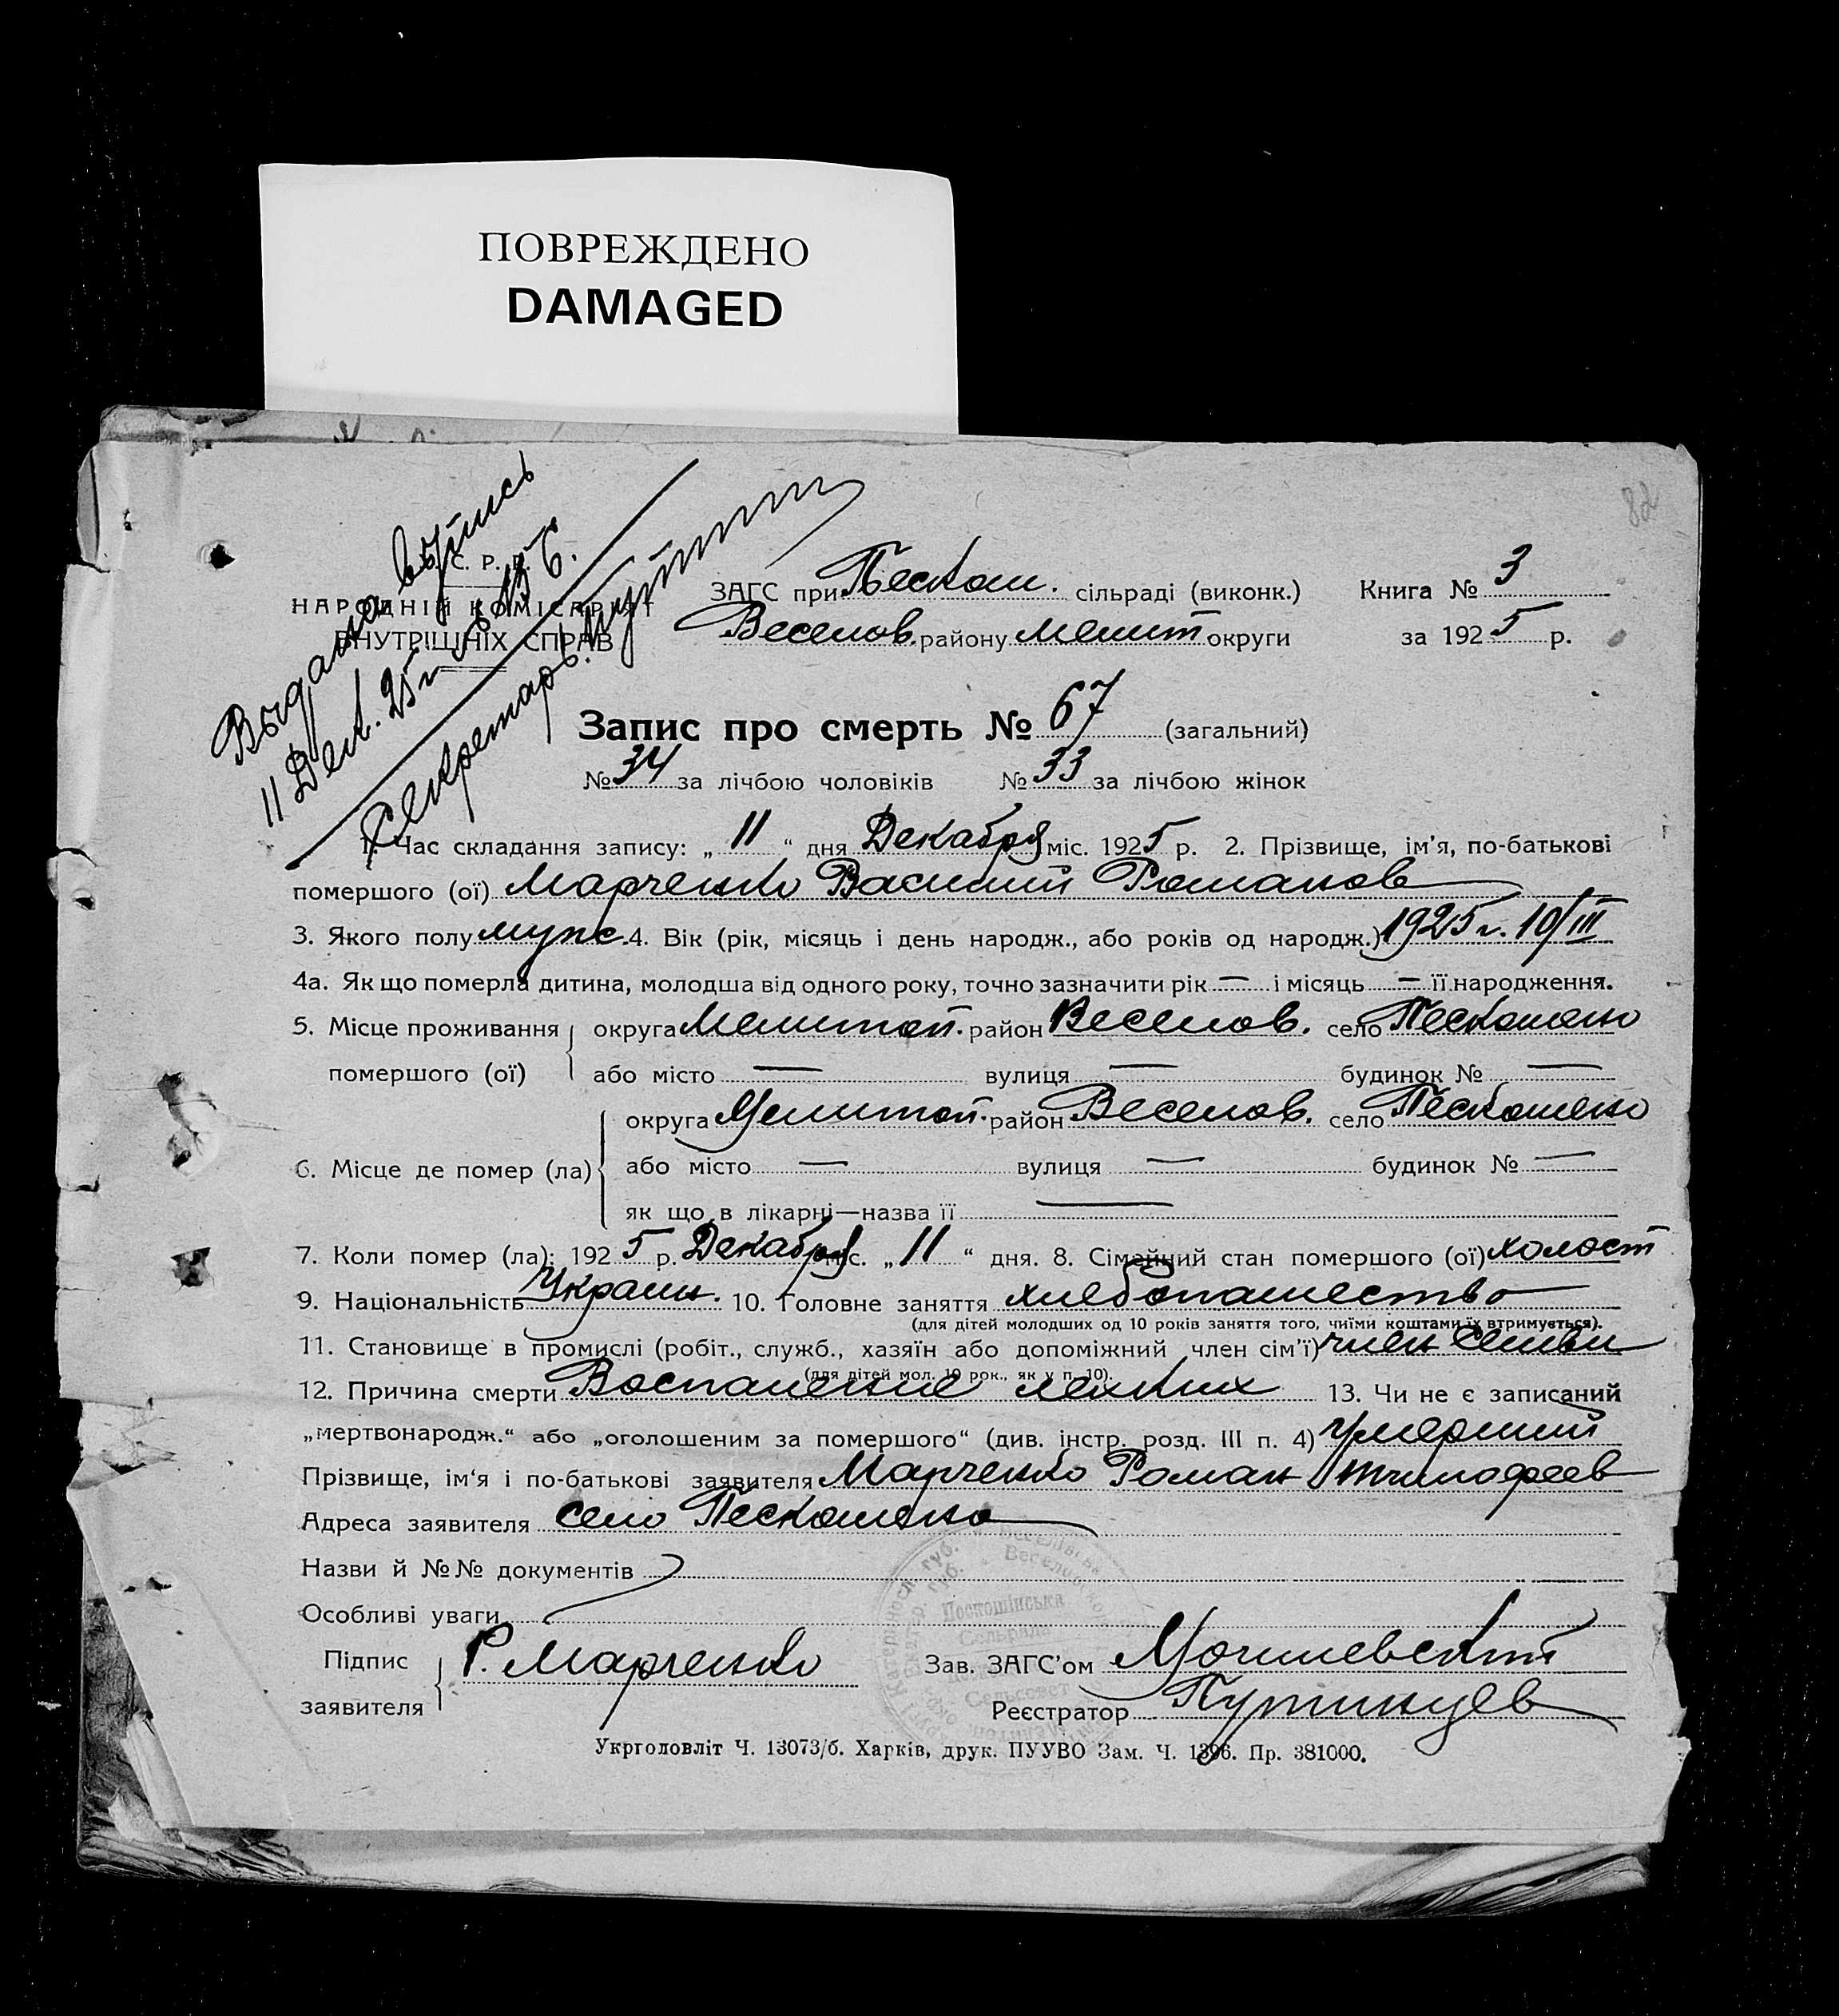 ПОВРЕЖДЕНО
DAMAGED
82
Выдана выпись
11 Дек. 25 г.
Секретарь
С. Р. Р.
НАРОДНІЙ КОМІСАРІЯТ
ВНУТРІШНІХ СПРАВ
ЗАГС при Пескош. сільраді (виконк.) Книга № 3
Веселов. району Мелит округи за 1925 р.
Запис про смерть № 67 (загальний)
№ 34 за лічбою чоловіків № 33 за лічбою жінок
1. Час складання запису: „ 11 “ дня Декабря міс. 1925 р. 2. Прізвище, ім'я, по-батькові
помершого (ої) Марченко Василий Романов
3. Якого полу муж. 4. Вік (рік, місяць і день народж., або років од народж.) 1925 г. 10/III
4а. Як що померла дитина, молодша від одного року, точно зазначити рік — і місяць — її народження.
5. Місце проживання округа Мелитоп. район Веселов. село Пескошено
помершого (ої) або місто — вулиця — будинок № —
округа Мелитоп. район Веселов. село Пескошено
6. Місце де помер (ла) або місто — вулиця — будинок № —
як що в лікарні—назва її —
7. Коли помер (ла): 1925 р. Декабря міс. „ 11 “ дня. 8. Сімейний стан помершого (ої) холост
9. Національність Украин. 10. Головне заняття хлебопашество
(для дітей молодших од 10 років заняття того, чиїми коштами їх втримується).
11. Становище в промислі (робіт., служб., хазяїн або допоміжний член сім'ї) член семьи
(для дітей мол. 10 рок., як у п. 10).
12. Причина смерти Воспаление легких 13. Чи не є записаний
„мертвонародж.“ або „оголошеним за помершого“ (див. інстр. розд. III п. 4) Умерший
Прізвище, ім'я і по-батькові заявителя Марченко Роман Тимофеев
Адреса заявителя село Пескошено
Назви й №№ документів
Особливі уваги
Підпис заявителя Р. Марченко
Зав. ЗАГС'ом
Реєстратор Путинцев
Укрголовліт Ч. 13073/б. Харків, друк. ПУУВО Зам. Ч. 1396. Пр. 381000.